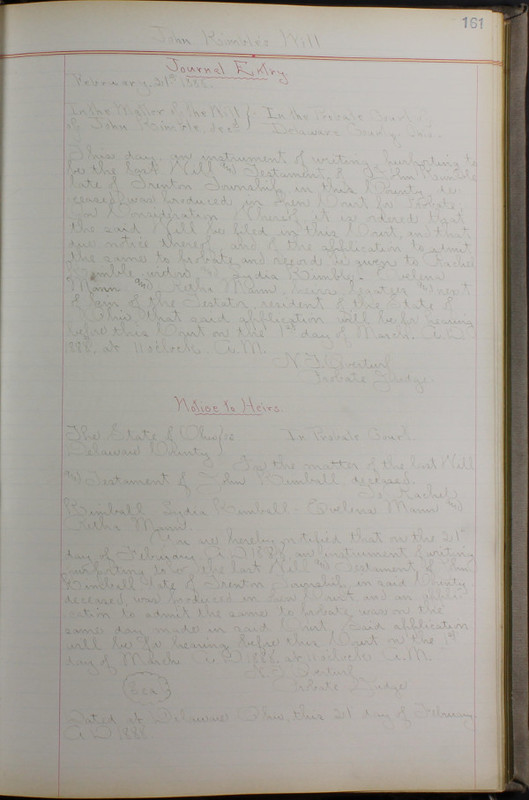 161
John Kimble's Will
Journal Entry
February 21st 1888.
In the Matter of the Will } In the Probate Court of
of John Kimble, dec'd } Delaware County Ohio.
This day an instrument of writing, purporting to
be the last Will and Testament of John Kimble
late of Trenton Township, in this County, de-
ceased, was produced in open Court for Probate,
on Consideration Whereof, it is ordered that
the said Will be filed in this Court, and that
due notice thereof, and of the application to admit
the same to probate and record, be given to Rachel
Kimble widow and Lydia Kimble. Evelena
Mann and Mann, being next
of kin of the Testator, resident of the State of
Ohio, that said application will be for hearing
before this Court on the 1st day of March A.D.
1888, at 11 o'clock A.M.
N. F. Overturf
Probate Judge
Notice to Heirs.
The State of Ohio } ss In Probate Court.
Delaware County
In the matter of the last Will
and Testament of John Kimball deceased.
To Rachel
Kimball Lydia Kimball - Evelena Mann and
Mann.
You are hereby notified that on the 21st
day of February A.D. 1888, an instrument of writing
purporting to be the last Will and Testament of John
Kimball late of Trenton Township in said County
deceased, was produced in open Court and an appli-
cation to admit the same to probate, was on the
same day made in said Court. Said application
will be for hearing before this Court on the 1st
day of March A.D. 1888, at 11 o'clock A.M.
N. F. Overturf
Seal Probate Judge
Dated at Delaware Ohio, this 21 day of February
A.D 1888